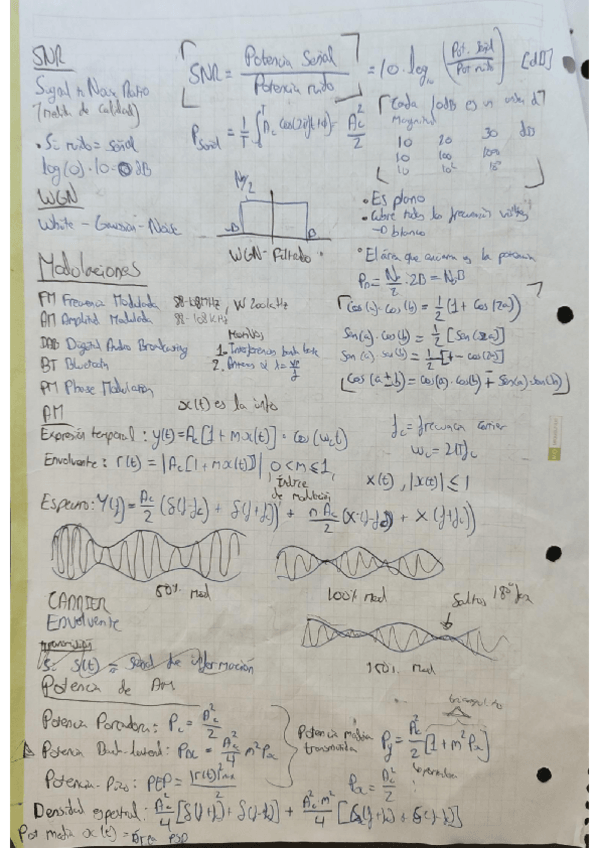 SNR
Signal to Noise Ratio
(medida de calidad)
• Si ruido = señal
log(0)·10 = 0 dB
SNR = Potencia Señal / Potencia ruido = 10·log₁₀ (Pot. señal / Pot ruido) [dB]
P señal = 1/T ∫ = Ac²/2
Cada 10dB es un orden de
Magnitud
10 20 30 dB
10 100 1000
10 10² 10³
WGN
White - Gaussian - Noise
N₀/2
-B B
WGN - Filtrado
• Es plano
• Cubre todas las frecuencias
→ blanco
• El área que encierra es la potencia
Pn = N₀/2 · 2B = N₀B
Modulaciones
FM Frecuencia Modulada 88-108MHz, W 200kHz
AM Amplitud Modulada
DAB Digital Audio Broadcasting
BT Bluetooth
PM Phase Modulation
Motivos
1. Interferencias banda base
2. Antenas
cos(a)·cos(a) = 1/2 (1 + cos(2a))
sen(a)·cos(a) = 1/2 [sen(2a)]
sen(a)·sen(a) = 1/2 [1 - cos(2a)]
cos(a ± b) = cos(a)·cos(b) ∓ sen(a)·sen(b)
AM x(t) es la info
Expresión temporal: y(t) = Ac[1 + mx(t)] · cos(ωct)
fc = frecuencia carrier
ωc = 2πfc
Envolvente: r(t) = |Ac[1 + mx(t)]| 0 < m ≤ 1
Índice
de modulación
x(t), |x(t)| ≤ 1
Espectro: Y(f) = Ac/2 (δ(f-fc) + δ(f+fc)) + mAc/2 (X(f-fc) + X(f+fc))
50% mod
100% mod
Saltos 180º fase
150% mod
CARRIER
Envolvente
s(t) = señal de información
Potencia de AM
Potencia Portadora: Pc = Ac²/2
Potencia Banda lateral: = Ac²/4 m²Px
Potencia-Pico: PEP = |r(t)|²max/2
Potencia media
transmitida
Py = Ac²/2 [1 + m²Px]
Px = A²/2
Densidad espectral: Ac²/4 [δ(f+fc) + δ(f-fc)] + Ac²m²/4 [Gx(f+fc) + Gx(f-fc)]
Pot media x(t) = área PSD